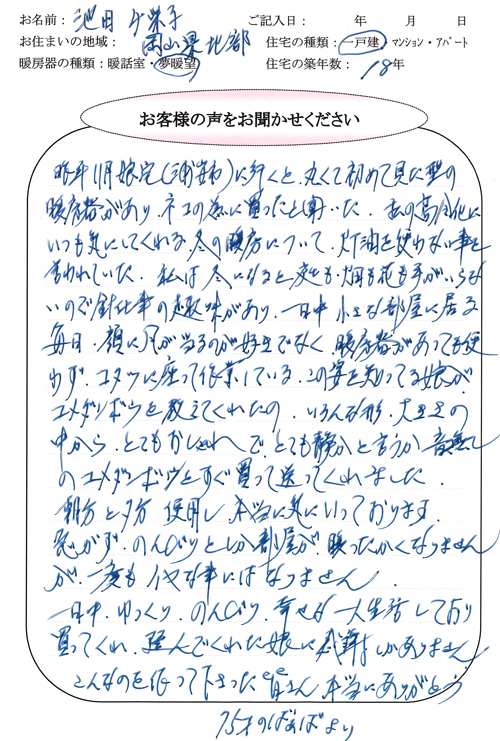 お名前： 池田 栄子 ご記入日： 年 月 日
お住まいの地域： 岡山県北部 住宅の種類：一戸建・マンション・アパート
暖房器の種類：暖話室・夢暖望 住宅の築年数： 18年
お客様の声をお聞かせください
昨年11月娘宅(浦安市)に行くと、丸くて初めて見た型の
暖房器があり、ネコの為に買ったと聞いた。私の高齢化に
いつも気にしてくれる冬の暖房について、灯油を使わない事を
言われていた。私は冬になると庭も畑も花も手がいらな
いので針仕事の趣味があり、一日中小さな部屋に居る
毎日、顔に風が当るのが好きでなく、暖房器があっても使
わず、コタツに座って作業している。この姿を知ってる娘が、
ユメダンボウを教えてくれたの、いろんな形、大きさの
中から、とてもおしゃれで、とても静かと言うか音無し
のユメダンボウをすぐ買って送ってくれました。
朝方と夕方使用し、本当に気にいっております。
急がず、のんびりとしか部屋が、暖ったかくなりません
が、一度もイヤな事にはなりません。
一日中、ゆっくり、のんびり、幸せな一人生活しており
買ってくれ、選んでくれた娘に感謝しかありません
こんなのを作って下さった皆さん、本当にありがとう
75才のばぁばより